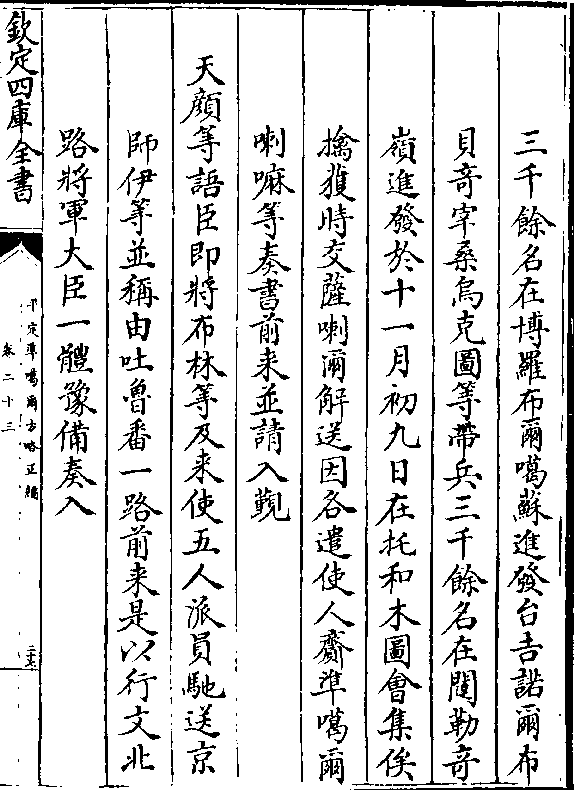 三千餘名在博羅布爾噶蘇進發台吉諾爾布
貝奇宰桑烏克圖等帶兵三千餘名在闥勒奇
嶺進發於十一月初九日在托和木圖會集俟
擒獲時交薩喇爾解送因各遣使人齎準噶爾
喇嘛等奏書前来並請入覲
天顔等語臣即將布林等及来使五人派員馳送京
師伊等並稱由吐魯番一路前来是以行文北
路將軍大臣一體豫備奏入
欽定四庫全書
平定準噶爾方略正編
卷二十三